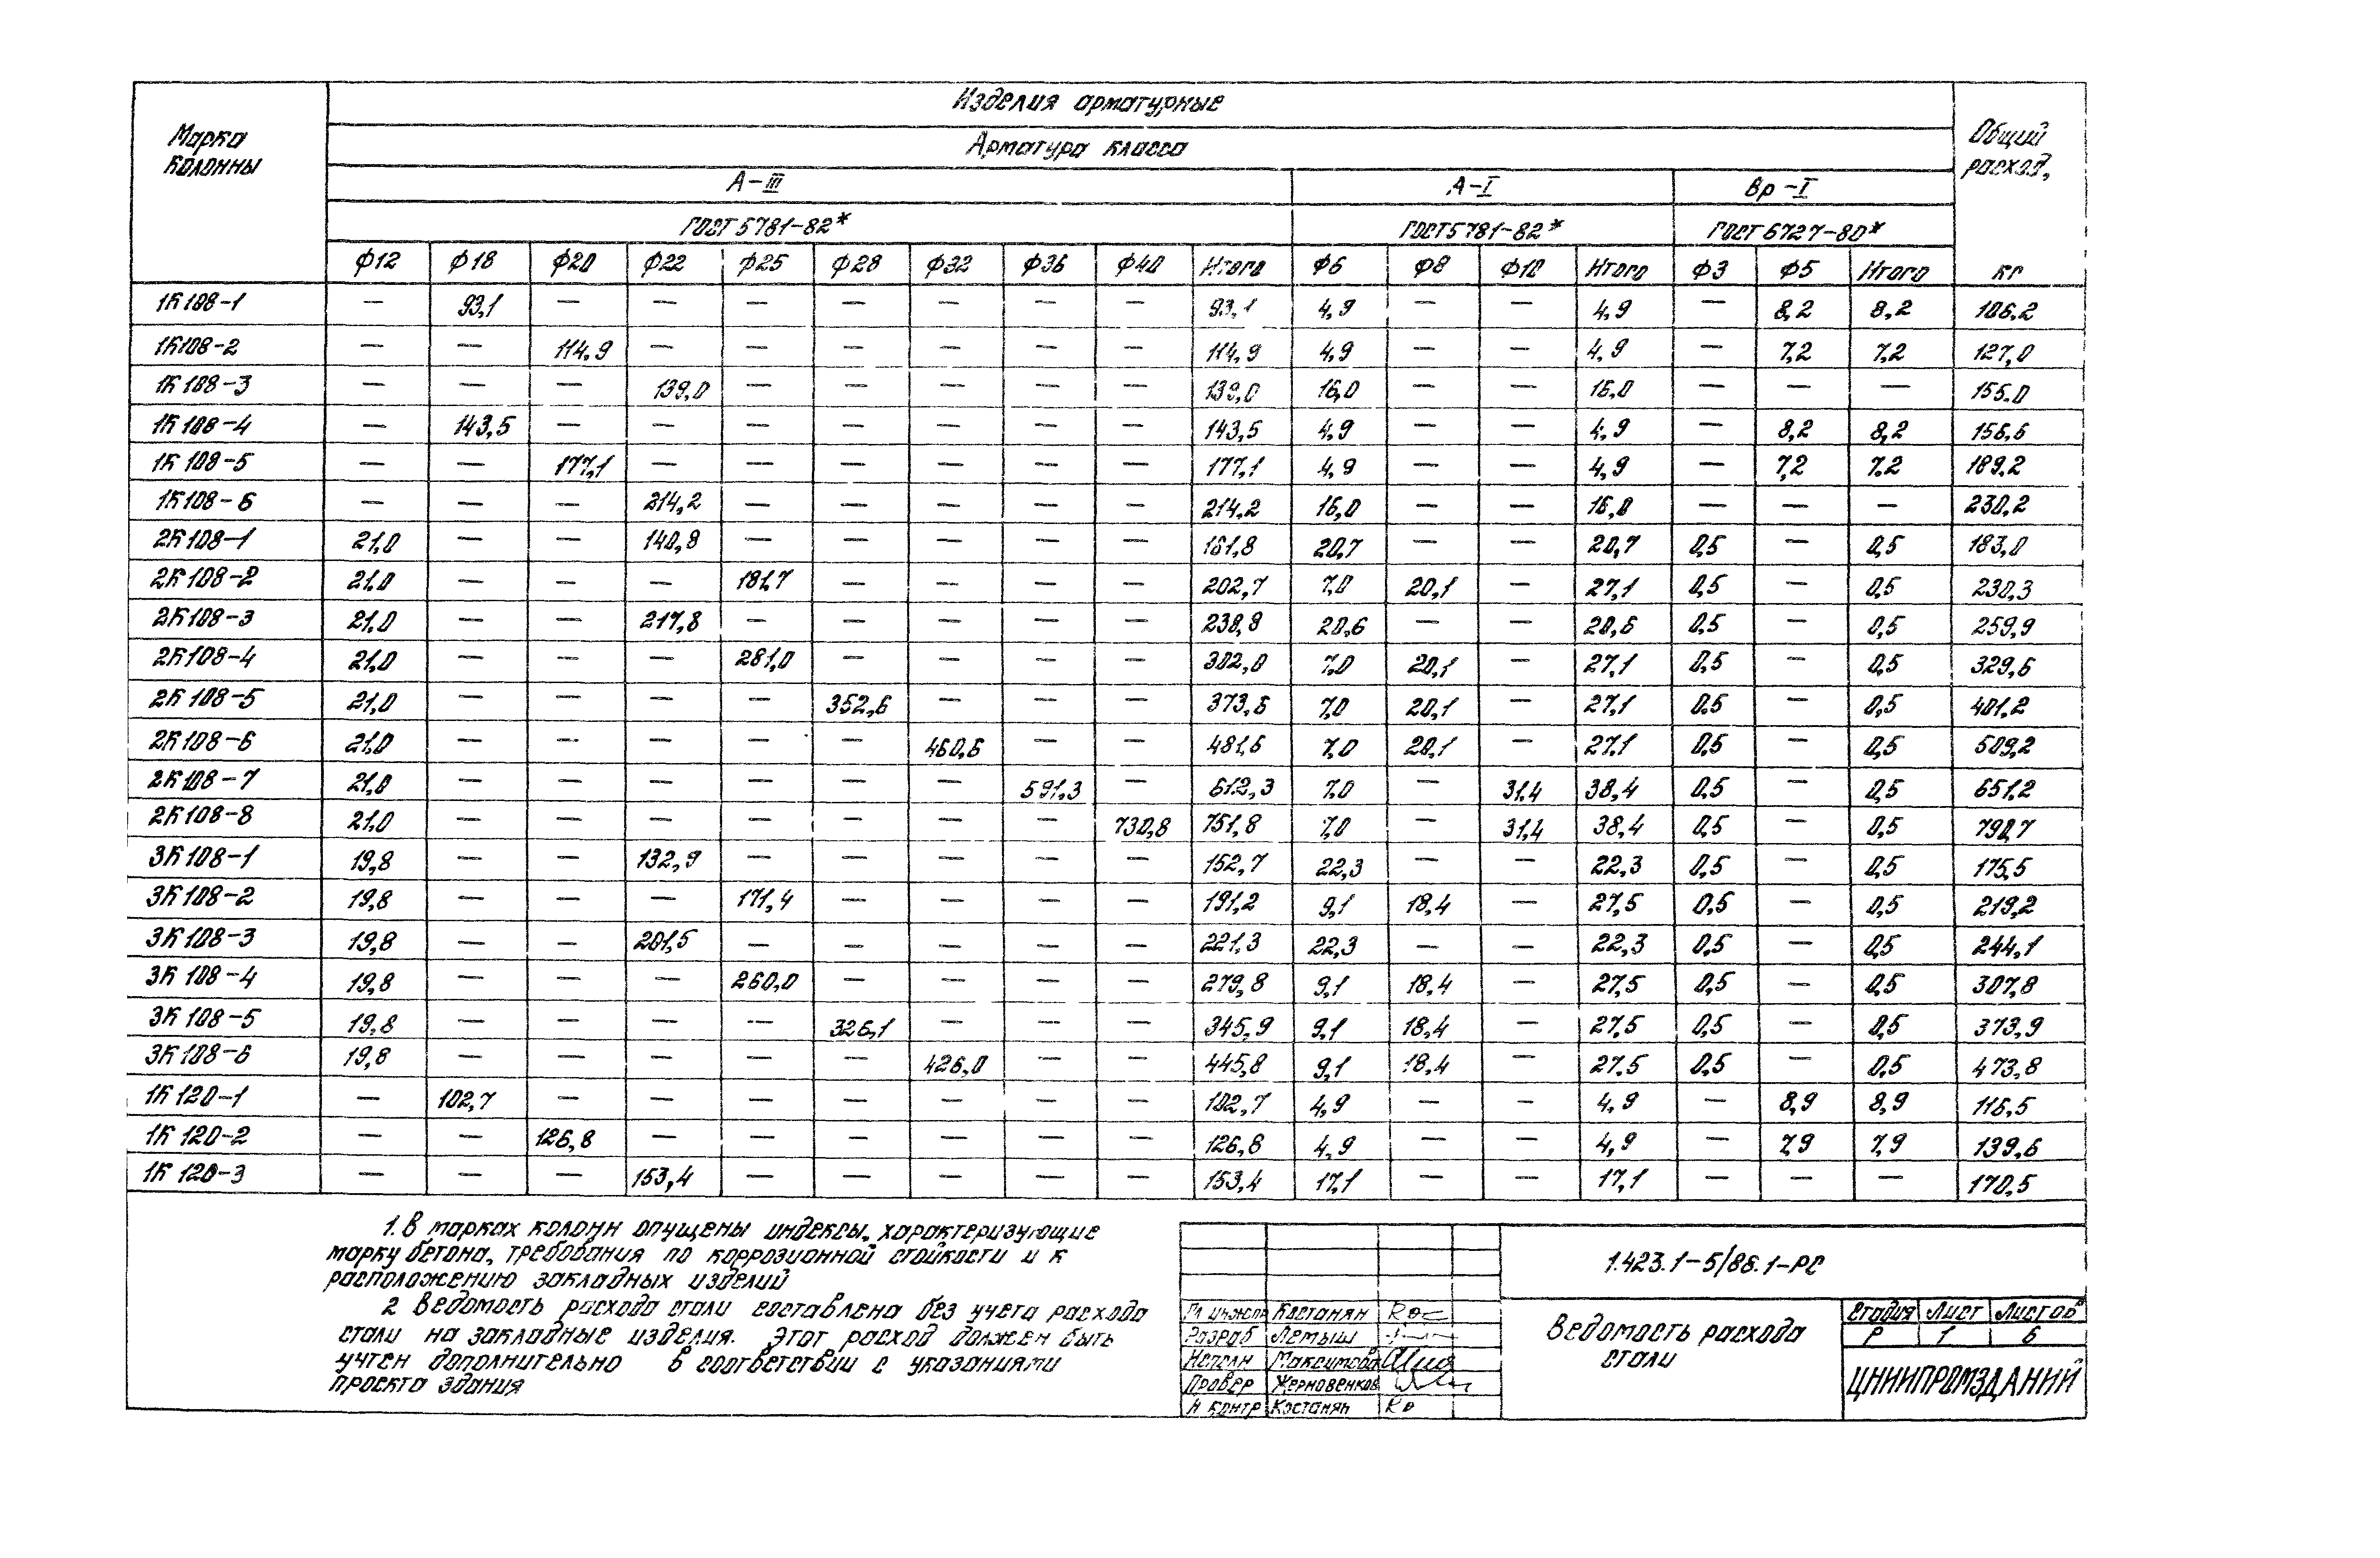 Марка колонны
Изделия арматурные
Общий расход, кг
Арматура класса
А-III А-I Вр-I
ГОСТ 5781-82* ГОСТ 5781-82* ГОСТ 6727-80*
Ф12 Ф18 Ф20 Ф22 Ф25 Ф28 Ф32 Ф36 Ф40 Итого Ф6 Ф8 Ф10 Итого Ф3 Ф5 Итого
1К108-1 — 93,1 — — — — — — — 93,1 4,9 — — 4,9 — 8,2 8,2 106,2
1К108-2 — — 114,9 — — — — — — 114,9 4,9 — — 4,9 — 7,2 7,2 127,0
1К108-3 — — — 139,0 — — — — — 139,0 16,0 — — 16,0 — — — 155,0
1К108-4 — 143,5 — — — — — — — 143,5 4,9 — — 4,9 — 8,2 8,2 156,6
1К108-5 — — 177,1 — — — — — — 177,1 4,9 — — 4,9 — 7,2 7,2 189,2
1К108-6 — — — 214,2 — — — — — 214,2 16,0 — — 16,0 — — — 230,2
2К108-1 21,0 — — 140,8 — — — — — 161,8 20,7 — — 20,7 0,5 — 0,5 183,0
2К108-2 21,0 — — — 181,7 — — — — 202,7 7,0 20,1 — 27,1 0,5 — 0,5 230,3
2К108-3 21,0 — — 217,8 — — — — — 238,8 20,6 — — 20,6 0,5 — 0,5 259,9
2К108-4 21,0 — — — 281,0 — — — — 302,0 7,0 20,1 — 27,1 0,5 — 0,5 329,6
2К108-5 21,0 — — — — 352,6 — — — 373,6 7,0 20,1 — 27,1 0,5 — 0,5 401,2
2К108-6 21,0 — — — — — 460,6 — — 481,6 7,0 20,1 — 27,1 0,5 — 0,5 509,2
2К108-7 21,0 — — — — — — 591,3 — 612,3 7,0 — 31,4 38,4 0,5 — 0,5 651,2
2К108-8 21,0 — — — — — — — 730,8 751,8 7,0 — 31,4 38,4 0,5 — 0,5 790,7
3К108-1 19,8 — — 132,9 — — — — — 152,7 22,3 — — 22,3 0,5 — 0,5 175,5
3К108-2 19,8 — — — 171,4 — — — — 191,2 9,1 18,4 — 27,5 0,5 — 0,5 219,2
3К108-3 19,8 — — 201,5 — — — — — 221,3 22,3 — — 22,3 0,5 — 0,5 244,1
3К108-4 19,8 — — — 260,0 — — — — 279,8 9,1 18,4 — 27,5 0,5 — 0,5 307,8
3К108-5 19,8 — — — — 326,1 — — — 345,9 9,1 18,4 — 27,5 0,5 — 0,5 373,9
3К108-6 19,8 — — — — — 426,0 — — 445,8 9,1 18,4 — 27,5 0,5 — 0,5 473,8
1К120-1 — 102,7 — — — — — — — 102,7 4,9 — — 4,9 — 8,9 8,9 116,5
1К120-2 — — 126,8 — — — — — — 126,8 4,9 — — 4,9 — 7,9 7,9 139,6
1К120-3 — — — 153,4 — — — — — 153,4 17,1 — — 17,1 — — — 170,5
1. В марках колонн опущены индексы, характеризующие
марку бетона, требования по коррозионной стойкости и к
расположению закладных изделий
2 Ведомость расхода стали составлена без учета расхода
стали на закладные изделия. Этот расход должен быть
учтен дополнительно в соответствии с указаниями
проекта здания
1.423.1-5/88.1-РС
Гл инж пр Костанян
Разраб Лемыш
Исполн Максимова
Провер Жерновенков
Н контр Костанян
Ведомость расхода
стали
Стадия Лист Листов
Р 1 6
ЦНИИПРОМЗДАНИЙ